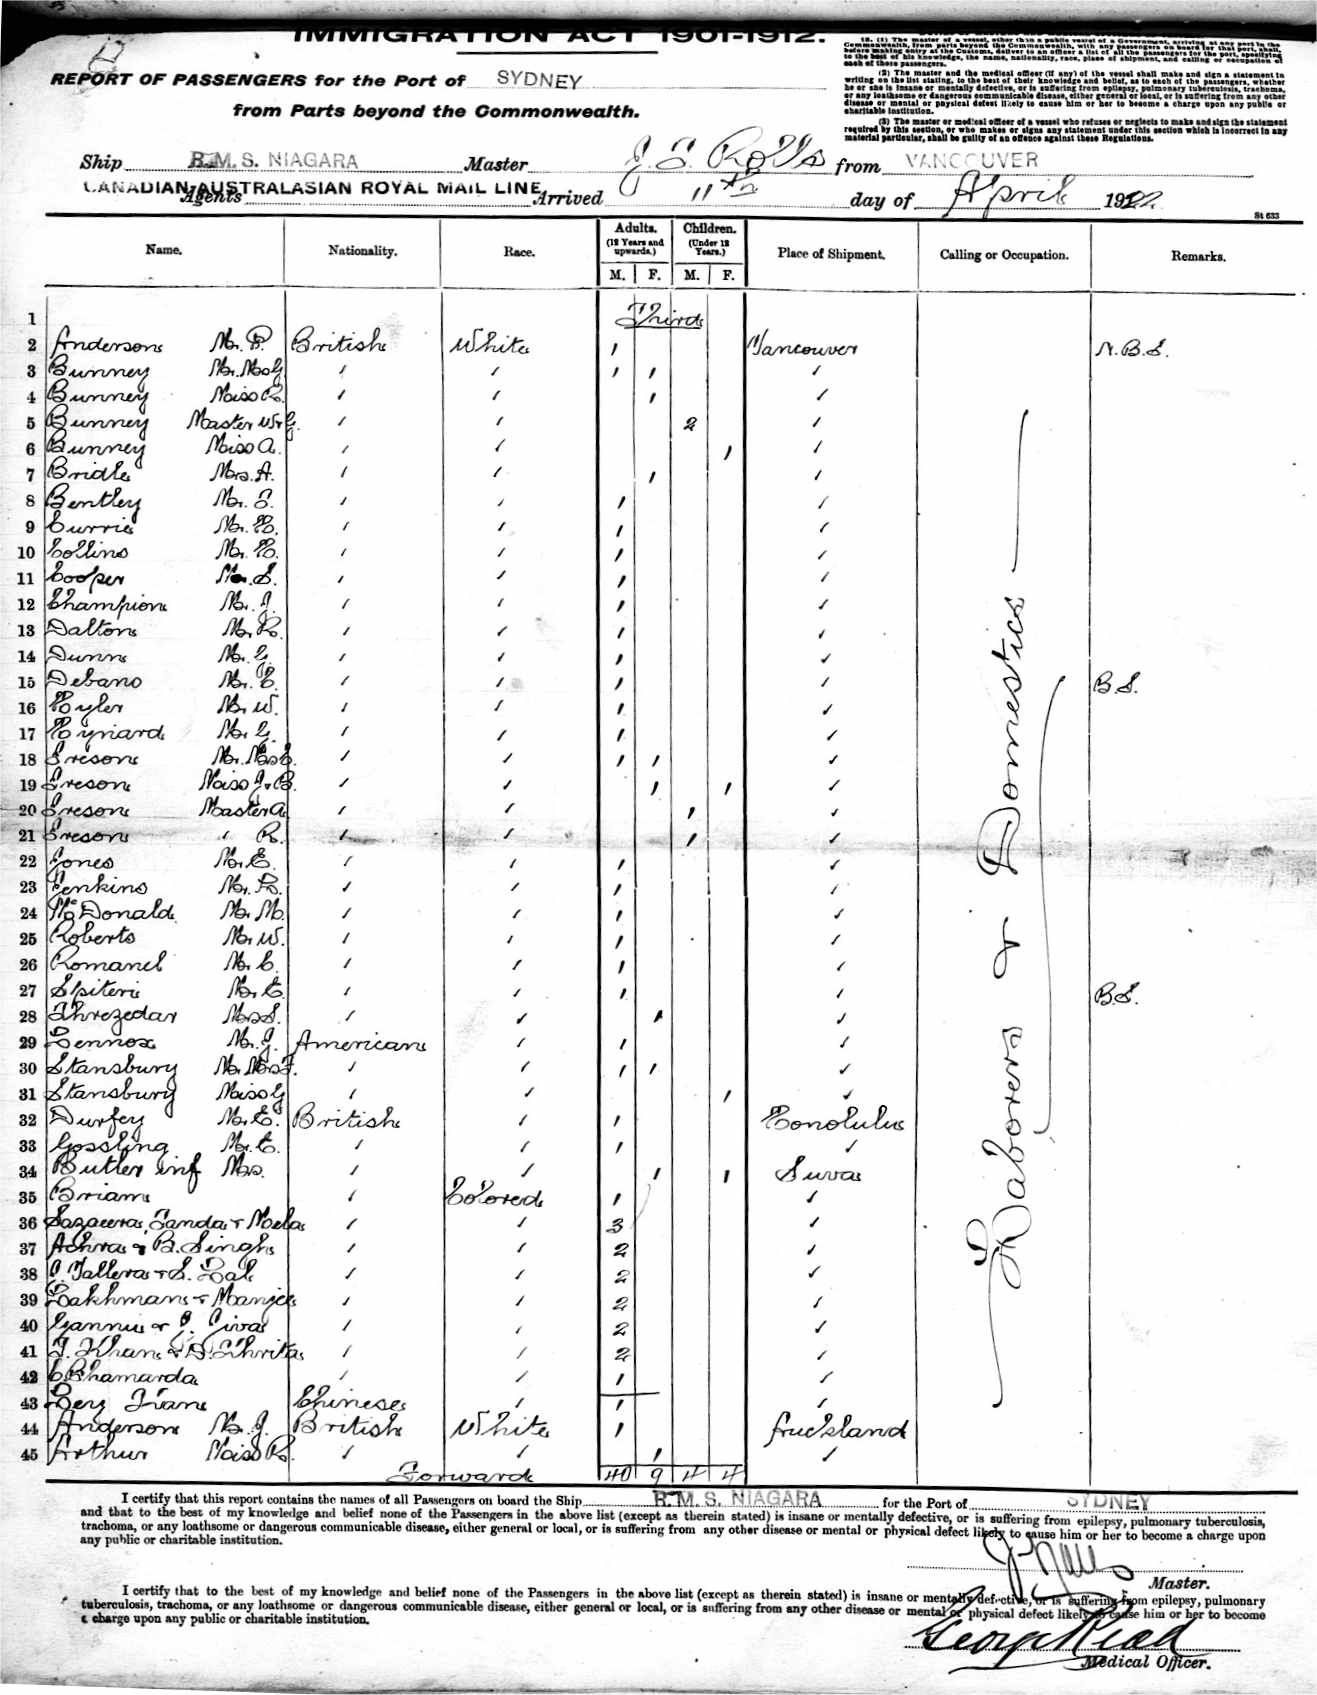 IMMIGRATION ACT 1901-1912.
REPORT OF PASSENGERS for the Port of SYDNEY
from Parts beyond the Commonwealth.
18. (1) The master of a vessel, other than a public vessel of a Government, arriving at any port in the
Commonwealth, from parts beyond the Commonwealth, with any passengers on board for that port, shall,
before making entry at the Customs, deliver to an officer a list of all the passengers for the port, specifying
to the best of his knowledge, the name, nationality, race, place of shipment, and calling or occupation of
each of those passengers.
(2) The master and the medical officer (if any) of the vessel shall make and sign a statement in
writing on the list stating, to the best of their knowledge and belief, as to each of the passengers, whether
he or she is insane or mentally defective, or is suffering from epilepsy, pulmonary tuberculosis, trachoma,
or any loathsome or dangerous communicable disease, either general or local, or is suffering from any other
disease or mental or physical defect likely to cause him or her to become a charge upon any public or
charitable institution.
(3) The master or medical officer of a vessel who refuses or neglects to make and sign the statement
required by this section, or who makes or signs any statement under this section which is incorrect in any
material particular, shall be guilty of an offence against these Regulations.
Ship R.M.S. NIAGARA Master J. T. Rolls from VANCOUVER
CANADIAN-AUSTRALASIAN ROYAL MAIL LINE
Agents Arrived 11th day of April 1922
St 633
Name. Nationality. Race. Adults. (12 Years and upwards.) Children. (Under 12 Years.) Place of Shipment. Calling or Occupation. Remarks.
M. F. M. F.
1 Third
2 Anderson Mr. P. British White 1 Vancouver N.B.S.
3 Bunney Mr. Mrs G. " " 1 1 "
4 Bunney Miss R. " " 1 "
5 Bunney Master W & G. " " 2 "
6 Bunney Miss A. " " 1 "
7 Bridle Mrs. A. " " 1 "
8 Bentley Mr. S. " " 1 "
9 Currie Mr. H. " " 1 "
10 Collins Mr. H. " " 1 "
11 Cooper Mr. S. " " 1 "
12 Champion Mr. J. " " 1 "
13 Dalton Mr. R. " " 1 "
14 Dunn Mr. G. " " 1 "
15 Debano Mr. C. " " 1 " B.S.
16 Hyler Mr. W. " " 1 "
17 Hyniard Mr. G. " " 1 "
18 Ireson Mr. Mrs E. " " 1 1 "
19 Ireson Miss J. & B. " " 1 1 "
20 Ireson Master A. " " 1 "
21 Ireson " R. " " 1 "
22 Jones Mr. E. " " 1 "
23 Jenkins Mr. R. " " 1 "
24 McDonald Mr. M. " " 1 "
25 Roberts Mr. W. " " 1 "
26 Romanel Mr. C. " " 1 "
27 Spiteri Mr. C. " " 1 " B.S.
28 Threzedar Mrs S. " " 1 "
29 Lennox Mr. J. American " 1 "
30 Stansbury Mr. Mrs F. " " 1 1 "
31 Stansbury Miss G " " 1 "
32 Durfey Mr. E. British " 1 Honolulu
33 Gossling Mr. C. " " 1 "
34 Butler inf Mrs. " " 1 1 Suva
35 Briam " Colored 1 "
36 Sazawa, Tanda & Mela " " 3 "
37 Achra & B. Singh " " 2 "
38 Tallera & S. Lal " " 2 "
39 Lakhman & Manjee " " 2 "
40 Gannu & J. Jiva " " 2 "
41 T. Khan & D. Thrita " " 2 "
42 C Bhamarda " " 1 "
43 Tian Chinese " 1 "
44 Anderson Mr. J. British White 1 Auckland
45 Arthur Miss R. " " 1 "
Forward 40 9 4 4
Laborers & Domestics
I certify that this report contains the names of all Passengers on board the Ship R.M.S. NIAGARA for the Port of SYDNEY
and that to the best of my knowledge and belief none of the Passengers in the above list (except as therein stated) is insane or mentally defective, or is suffering from epilepsy, pulmonary tuberculosis,
trachoma, or any loathsome or dangerous communicable disease, either general or local, or is suffering from any other disease or mental or physical defect likely to cause him or her to become a charge upon
any public or charitable institution.
Master.
I certify that to the best of my knowledge and belief none of the Passengers in the above list (except as therein stated) is insane or mentally defective, or is suffering from epilepsy, pulmonary
tuberculosis, trachoma, or any loathsome or dangerous communicable disease, either general or local, or is suffering from any other disease or mental or physical defect likely to cause him or her to become
a charge upon any public or charitable institution.
George Read
Medical Officer.